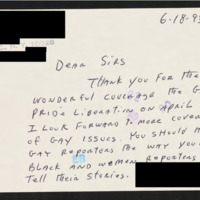 6-18-93
Dear Sirs
Thank you for the
wonderful coverage the G
Pride Liberation on April
I look forward to more cover
of gay issues. You should h
gay reporters the way you
Black and women reporters
Tell their stories.